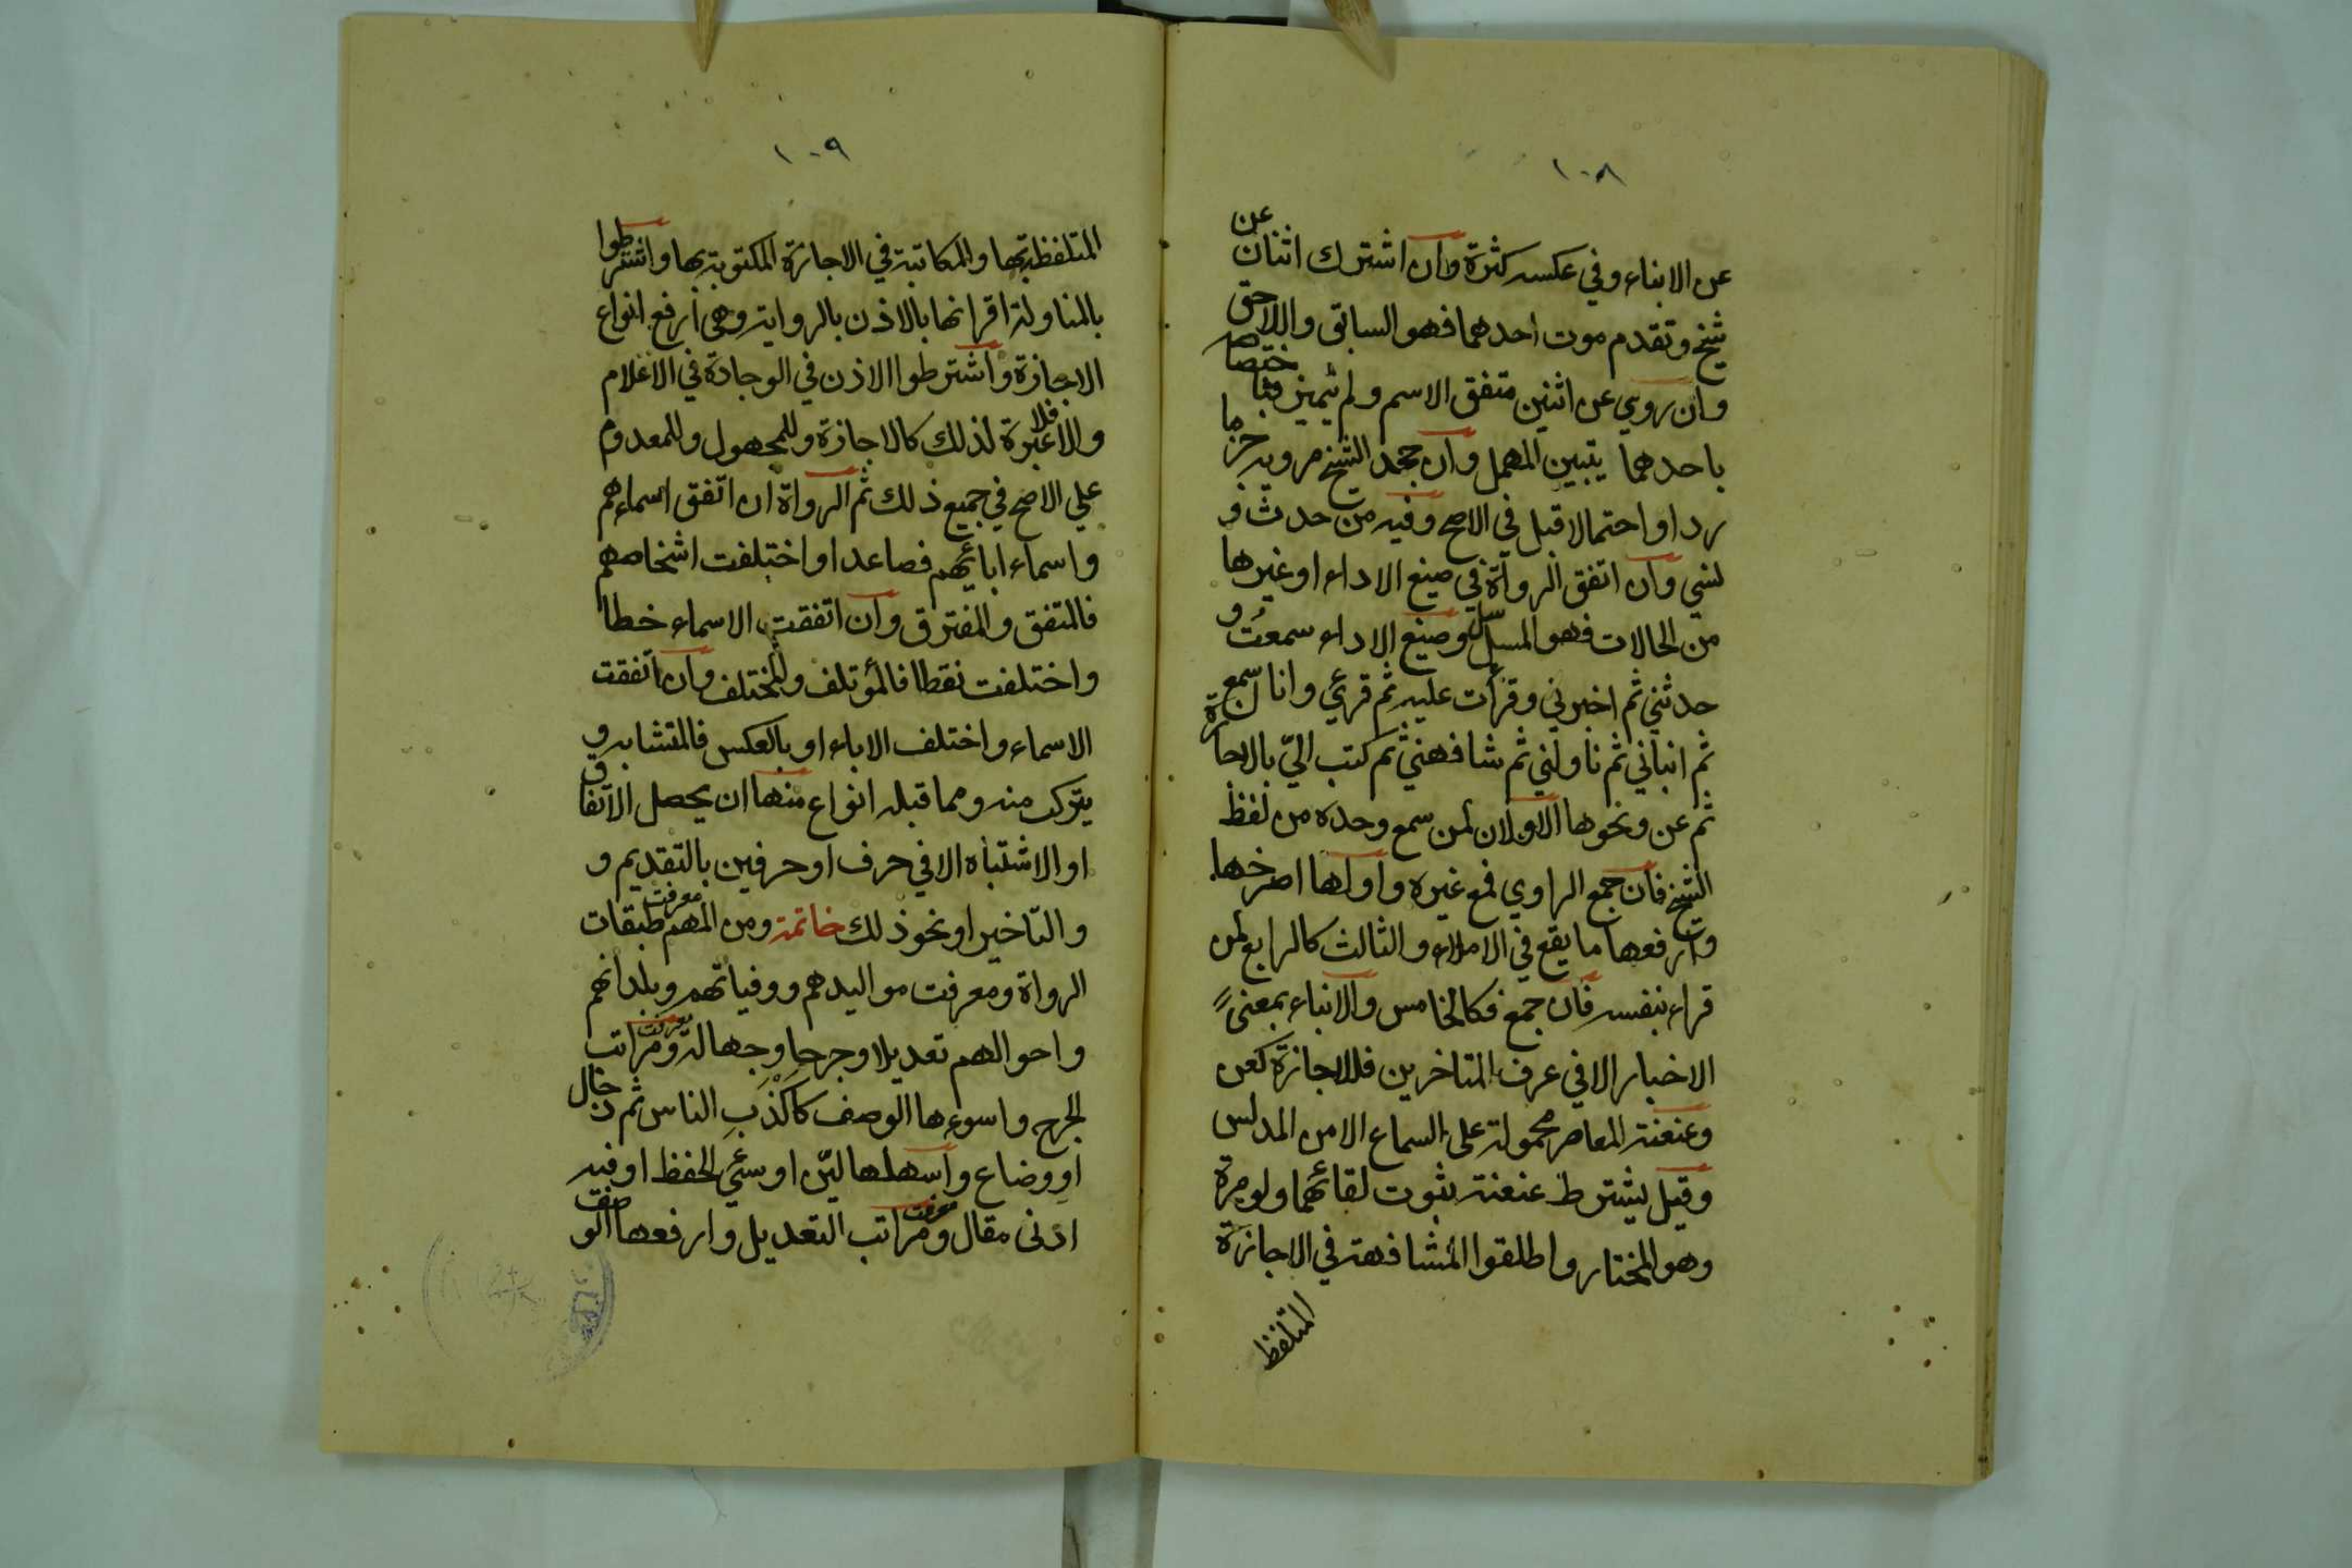 ١٠٨
عن الابناء وفي عكسه كثرة وان اشترك اثنان عن
شيخ وتقدم موت احدهما فهو السابق واللاحق
وان روي عن اثنين متفق الاسم ولم يتميز فباختصاصه
باحدهما يتبين المهمل وان جحد الشيخ مرويه جزما
رد او احتمالا قبل في الاصح وفيه من حدث و
نسي وان اتفق الرواة في صيغ الاداء او غيرها
من الحالات فهو المسلسل وصيغ الاداء سمعت و
حدثني ثم اخبرني وقرأت عليه ثم قرئ وانا اسمع
ثم انباني ثم ناولني ثم شافهني ثم كتب اليّ بالاجازة
ثم عن ونحوها الاولان لمن سمع وحده من لفظ
الشيخ فان جمع الراوي فمع غيره واولها اصرحها
وارفعها ما يقع في الاملاء والثالث كالرابع لمن
قراء بنفسه فان جمع فكالخامس والانباء بمعنىً
الاخبار الا في عرف المتاخرين فللاجازة كعن
وعنعنة المعاصر محمولة على السماع الا من المدلس
وقيل يشترط عنعنة بثبوت لقائهما ولو مرة
وهو المختار واطلقوا المشافهة في الاجازة
المتلفظ
١٠٩
المتلفظ بها والمكاتبة في الاجازة المكتوبة بها واشترطوا
بالمناولة اقرانها بالاذن بالرواية وهي ارفع انواع
الاجازة واشترطوا الاذن في الوجادة في الاعلام
والا فلا عبرة لذلك كالاجازة وللمجهول وللمعدوم
علي الاصح في جميع ذلك ثم الرواة ان اتفق اسماءهم
واسماء ابائهم فصاعدا واختلفت اشخاصهم
فالمتفق والمفترق وان اتفقت الاسماء خطا
واختلفت نقطا فالمؤتلف والمختلف وان اتفقت
الاسماء واختلف الاباء او بالعكس فالمتشابه و
يتركب منه ومما قبله انواع منها ان يحصل الاتفاق
او الاشتباه الا في حرف او حرفين بالتقديم و
والتاخير او نحو ذلك خاتمة ومن المهم معرفت طبقات
الرواة ومعرفت مواليدهم ووفياتهم وبلدانهم
واحوالهم تعديلا وجرحا وجهالة ومعرفت مراتب
الجرح واسوءها الوصف كاكذب الناس ثم دجال
او وضاع واسهلها ليّن او سئي الحفظ او فيه
ادنى مقال ومعرفت مراتب التعديل وارفعها الوصف